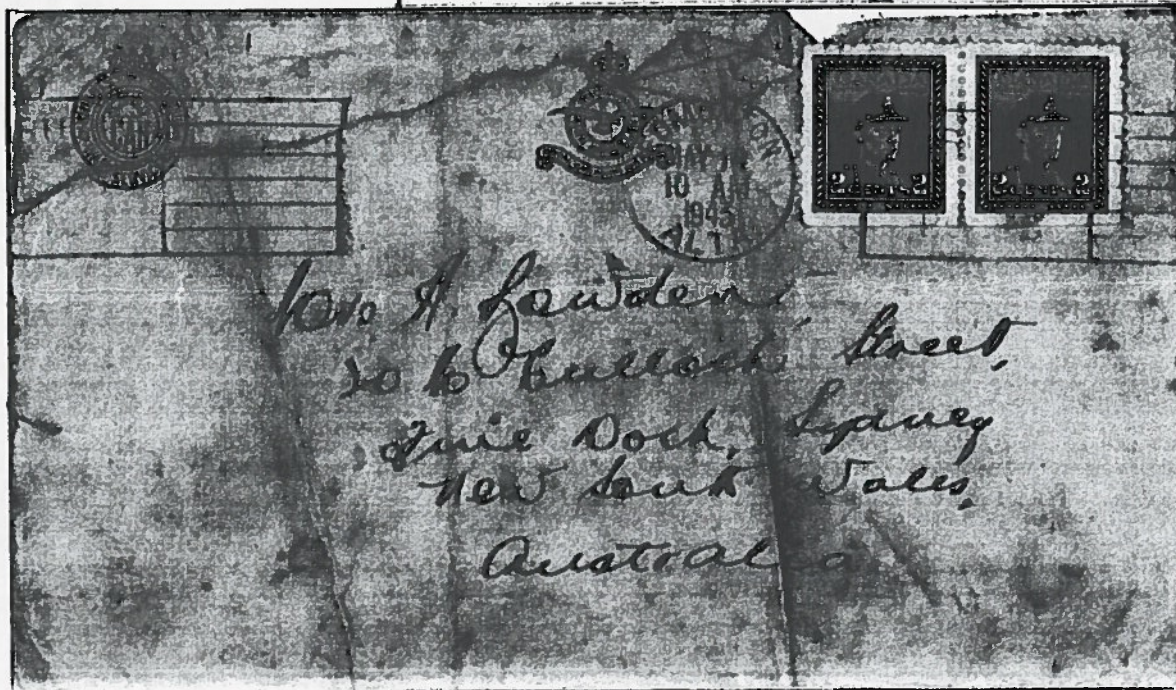 EDMONTON
MAY
10 AM
1943
ALTA
2 CENTS 2
2 CENTS 2
Mrs A. Lowden,
20 McCulloch Street,
Five Dock, Sydney
New South Wales,
Australia